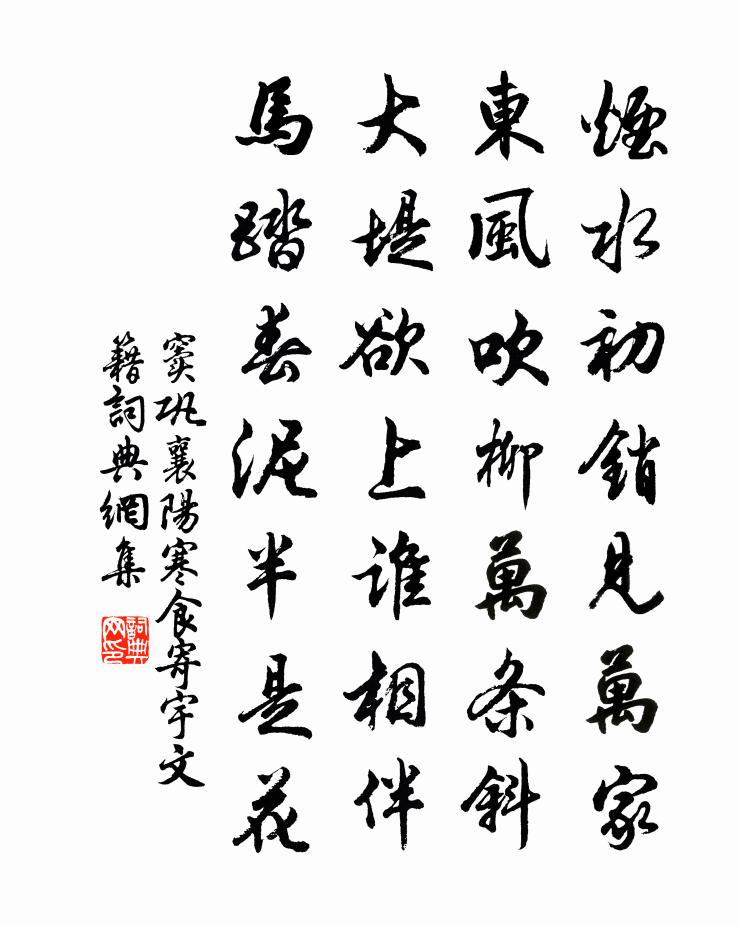 煙水初銷見萬家
東風吹柳萬条斜
大堤欲上誰相伴
馬踏春泥半是花
窦巩襄陽寒食寄宇文
籍詞典網集
詞典
网印